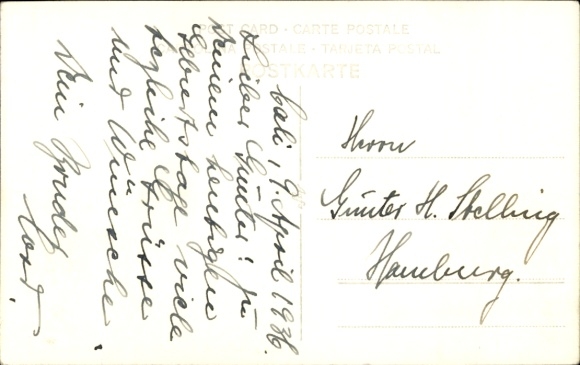 POST CARD - CARTE POSTALE
POSTALE - TARJETA POSTAL
POSTKARTE
Cali, 9. April 1936.
Lieber Günter! Zu
Deinem heutigen
Geburtstage viele
herzliche Grüsse
und Wünsche.
Dein Bruder
Herrn
Günter H. Stelling
Hamburg.